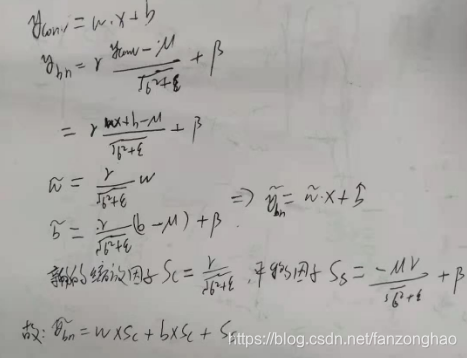 y_conv = w·x + b
y_bn = γ (y_conv − μ)/√(δ²+ε) + β
= γ (wx + b − μ)/√(δ²+ε) + β
w̃ = γ/√(δ²+ε) w
b̃ = γ/√(δ²+ε) (b − μ) + β
=> ỹ_bn = w̃·x + b̃
新的缩放因子 Sc = γ/√(δ²+ε), 平移因子 Ss = −μγ/√(δ²+ε) + β
故: ỹ_bn = wxSc + bxSc + Ss
https://blog.csdn.net/fanzonghao